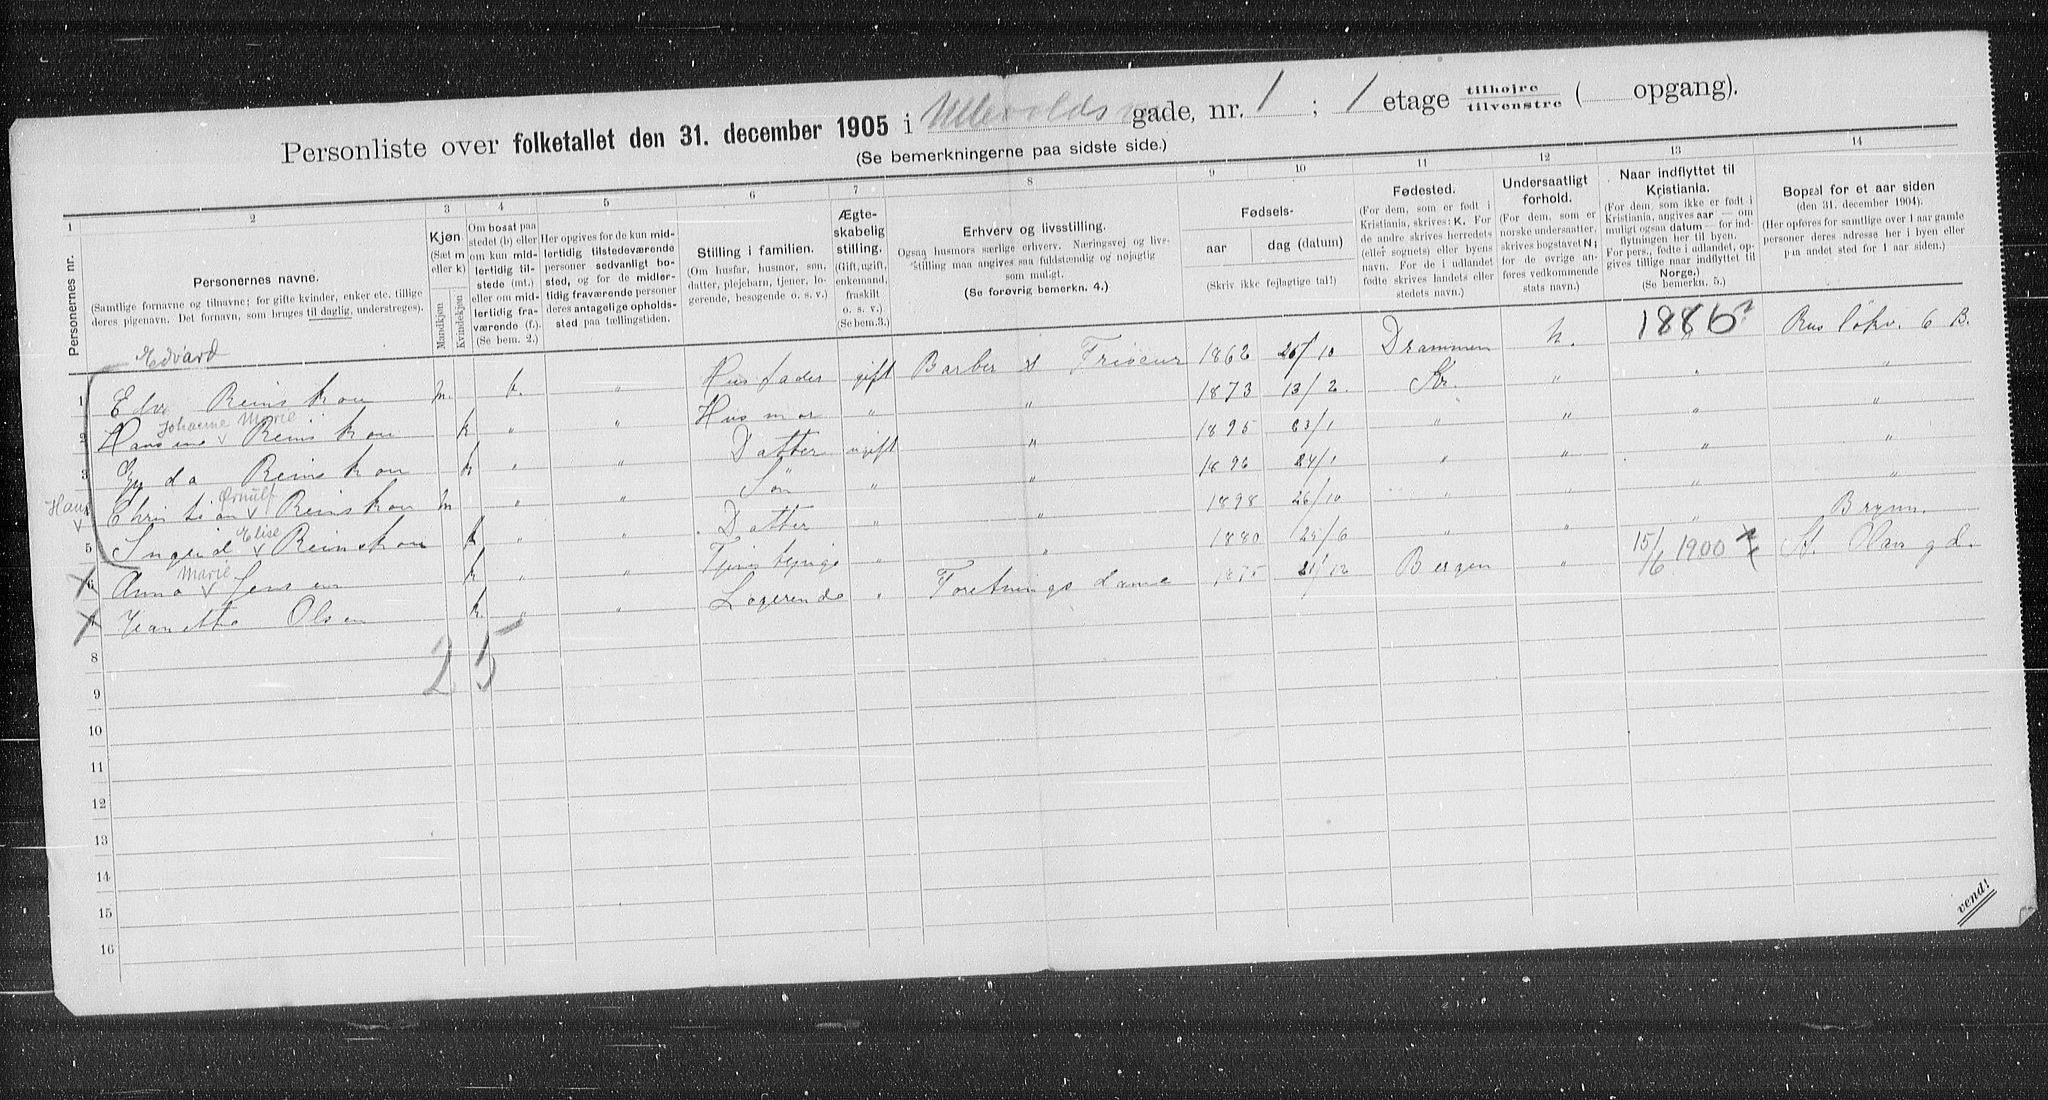 Personliste over folketallet den 31. december 1905 i Ullevolds gade, nr. 1 ; 1 etage tilhøjre / tilvenstre ( opgang).
(Se bemerkningerne paa sidste side.)
1 2 3 4 5 6 7 8 9 10 11 12 13 14
Personernes nr.
Personernes navne.
(Samtlige fornavne og tilnavne; for gifte kvinder, enker etc. tillige
deres pigenavn. Det fornavn, som bruges til daglig, understreges).
Kjøn.
(Sæt m
eller k)
Mandkjøn
Kvindekjøn
Om bosat paa
stedet (b) eller
om kun mid-
lertidig til-
stede (mt.)
eller om mid-
lertidig fra-
værende (f.).
(Se bem. 2.)
Her opgives for de kun mid-
lertidig tilstedeværende
personer sedvanligt bo-
sted, og for de midler-
tidig fraværende personer
deres antagelige opholds-
sted paa tællingstiden.
Stilling i familien.
(Om husfar, husmor, søn,
datter, plejebarn, tjener, lo-
gerende, besøgende o. s. v.)
Ægte-
skabelig
stilling.
(Gift, ugift,
enkemand,
fraskilt
o. s. v.)
(Se bem.3.)
Erhverv og livsstilling.
Ogsaa husmors særlige erhverv. Næringsvej og livs-
stilling maa angives saa fuldstændig og nøjagtig
som muligt.
(Se forøvrig bemerkn. 4.)
Fødsels-
aar
dag (datum)
(Skriv ikke fejlagtige tal!)
Fødested.
(For dem, som er født i
Kristiania, skrives: K. For
de andre skrives herredets
(eller sognets) eller byens
navn. For de i udlandet
fødte skrives landets eller
stedets navn.)
Undersaatligt
forhold.
(For dem, som er
norske undersaatter,
skrives bogstavet N;
for de øvrige an-
føres vedkommende
stats navn.)
Naar indflyttet til
Kristiania.
(For dem, som ikke er født i
Kristiania, angives aar — om
muligt ogsaa datum — for ind-
flytningen her til byen.
For pers., fødte i udlandet, op-
gives tillige naar indflyttet til
Norge.)
(Se bemerkn. 5.)
Bopæl for et aar siden
(den 31. december 1904).
(Her opføres for samtlige over 1 aar gamle
personer deres adresse her i byen eller
paa andet sted for 1 aar siden.)
Edvard
1 Reinskou m. b. " Husfader gift Barber & Frisør 1862 26/10 Drammen N. 1886? 6 B.
Johanne Marie
2 Reinskou k " " Husmor " " 1873 13/2 Kr. " " "
3 Gyda Reinskou k " " Datter ugift " 1895 23/1 " " " "
Hans Ørnulf
Christian Reinskou m " " Søn " " 1896 24/1 " " " "
Elise
5 Ingrid Reinskou k " " Datter " " 1898 26/10 " " " "
Marie
6 Anna Jensen k " " " " 1880 " " Bryn.
Olsen k " " Logerende " Foretningsdame 21/12 Bergen " 15/6 1900 St. Olavs gd.
2 5
8
9
10
11
12
13
14
15
16
vend!